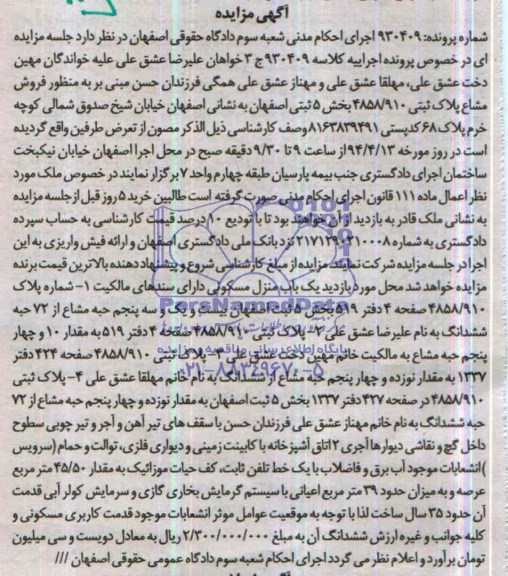 آگهی مزایده
شماره پرونده: ۹۳۰۴۰۹ اجرای احکام مدنی شعبه سوم دادگاه حقوقی اصفهان در نظر دارد جلسه مزایده
ای در خصوص پرونده اجراییه کلاسه ۹۳۰۴۰۹ ج ۳ خواهان علیرضا عشق علی علیه خواندگان مهین
دخت عشق علی، مهلقا عشق علی و مهناز عشق علی همگی فرزندان حسن مبنی بر به منظور فروش
مشاع پلاک ثبتی ۴۸۵۸/۹۱۰ بخش ۵ ثبتی اصفهان به نشانی اصفهان خیابان شیخ صدوق شمالی کوچه
خرم پلاک ۶۸ کدپستی ۸۱۶۳۸۳۹۴۹۱ وصف کارشناسی ذیل الذکر مصون از تعرض طرفین واقع گردیده
است در روز مورخه ۹۴/۴/۱۳ از ساعت ۹ تا ۹/۳۰ دقیقه صبح در محل اجرا اصفهان خیابان نیکبخت
ساختمان اجرای دادگستری جنب بیمه پارسیان طبقه چهارم واحد ۷ برگزار نمایند در خصوص ملک مورد
نظر اعمال ماده ۱۱۱ قانون اجرای احکام مدنی صورت گرفته است طالبین خرید ۵ روز قبل از جلسه مزایده
به نشانی ملک قادر به بازدید از آن خواهند بود تا با تودیع ۱۰ درصد قیمت کارشناسی به حساب سپرده
دادگستری به شماره ۲۱۷۱۲۹۰۲۱۰۰۰۸ نزد بانک ملی دادگستری اصفهان و ارائه فیش واریزی به این
اجرا در جلسه مزایده شرکت نمایند. مزایده از مبلغ کارشناسی شروع و پیشنهاد دهنده بالاترین قیمت برنده
مزایده خواهد شد محل مورد بازدید یک باب منزل مسکونی دارای سندهای مالکیت ۱- شماره پلاک
۴۸۵۸/۹۱۰ صفحه ۴ دفتر ۵۱۹ بخش ۵ ثبت اصفهان بیست و یک و سه پنجم حبه مشاع از ۷۲ حبه
ششدانگ به نام علیرضا عشق علی ۲- پلاک ثبتی ۴۸۵۸/۹۱۰ صفحه ۴ دفتر ۵۱۹ به مقدار ۱۰ و چهار
پنجم حبه مشاع به مالکیت خانم مهین دخت عشق علی ۳- پلاک ثبتی ۴۸۵۸/۹۱۰ صفحه ۴۲۴ دفتر
۱۳۳۷ به مقدار نوزده و چهار پنجم حبه مشاع از ششدانگ به نام خانم مهلقا عشق علی ۴- پلاک ثبتی
۴۸۵۸/۹۱۰ در صفحه ۴۲۷ دفتر ۱۳۳۷ بخش ۵ ثبت اصفهان به مقدار نوزده و چهار پنجم حبه مشاع از ۷۲
حبه ششدانگ به نام خانم مهناز عشق علی فرزندان حسن با سقف های تیر آهن و آجر و تیر چوبی سطوح
داخل گچ و نقاشی دیوارها آجری ۲ اتاق آشپزخانه با کابینت زمینی و دیواری فلزی، توالت و حمام (سرویس
)انشعابات موجود آب برق و فاضلاب با یک خط تلفن ثابت، کف حیات موزائیک به مقدار ۴۵/۵۰ متر مربع
عرصه و به میزان حدود ۳۹ متر مربع اعیانی با سیستم گرمایش بخاری گازی و سرمایش کولر آبی قدمت
آن حدود ۳۵ سال ساخت لذا با توجه به موقعیت عوامل موثر انشعابات موجود قدمت کاربری مسکونی و
کلیه جوانب و غیره ارزش ششدانگ آن به مبلغ ۲/۳۰۰/۰۰۰/۰۰۰ ریال به معادل دویست و سی میلیون
تومان برآورد و اعلام نظر می گردد اجرای احکام شعبه سوم دادگاه عمومی حقوقی اصفهان ///
ParsNamadData
پایگاه اطلاع رسانی مناقصه و مزایده
۰۲۱-۸۸۳۴۹۶۷۰-۵